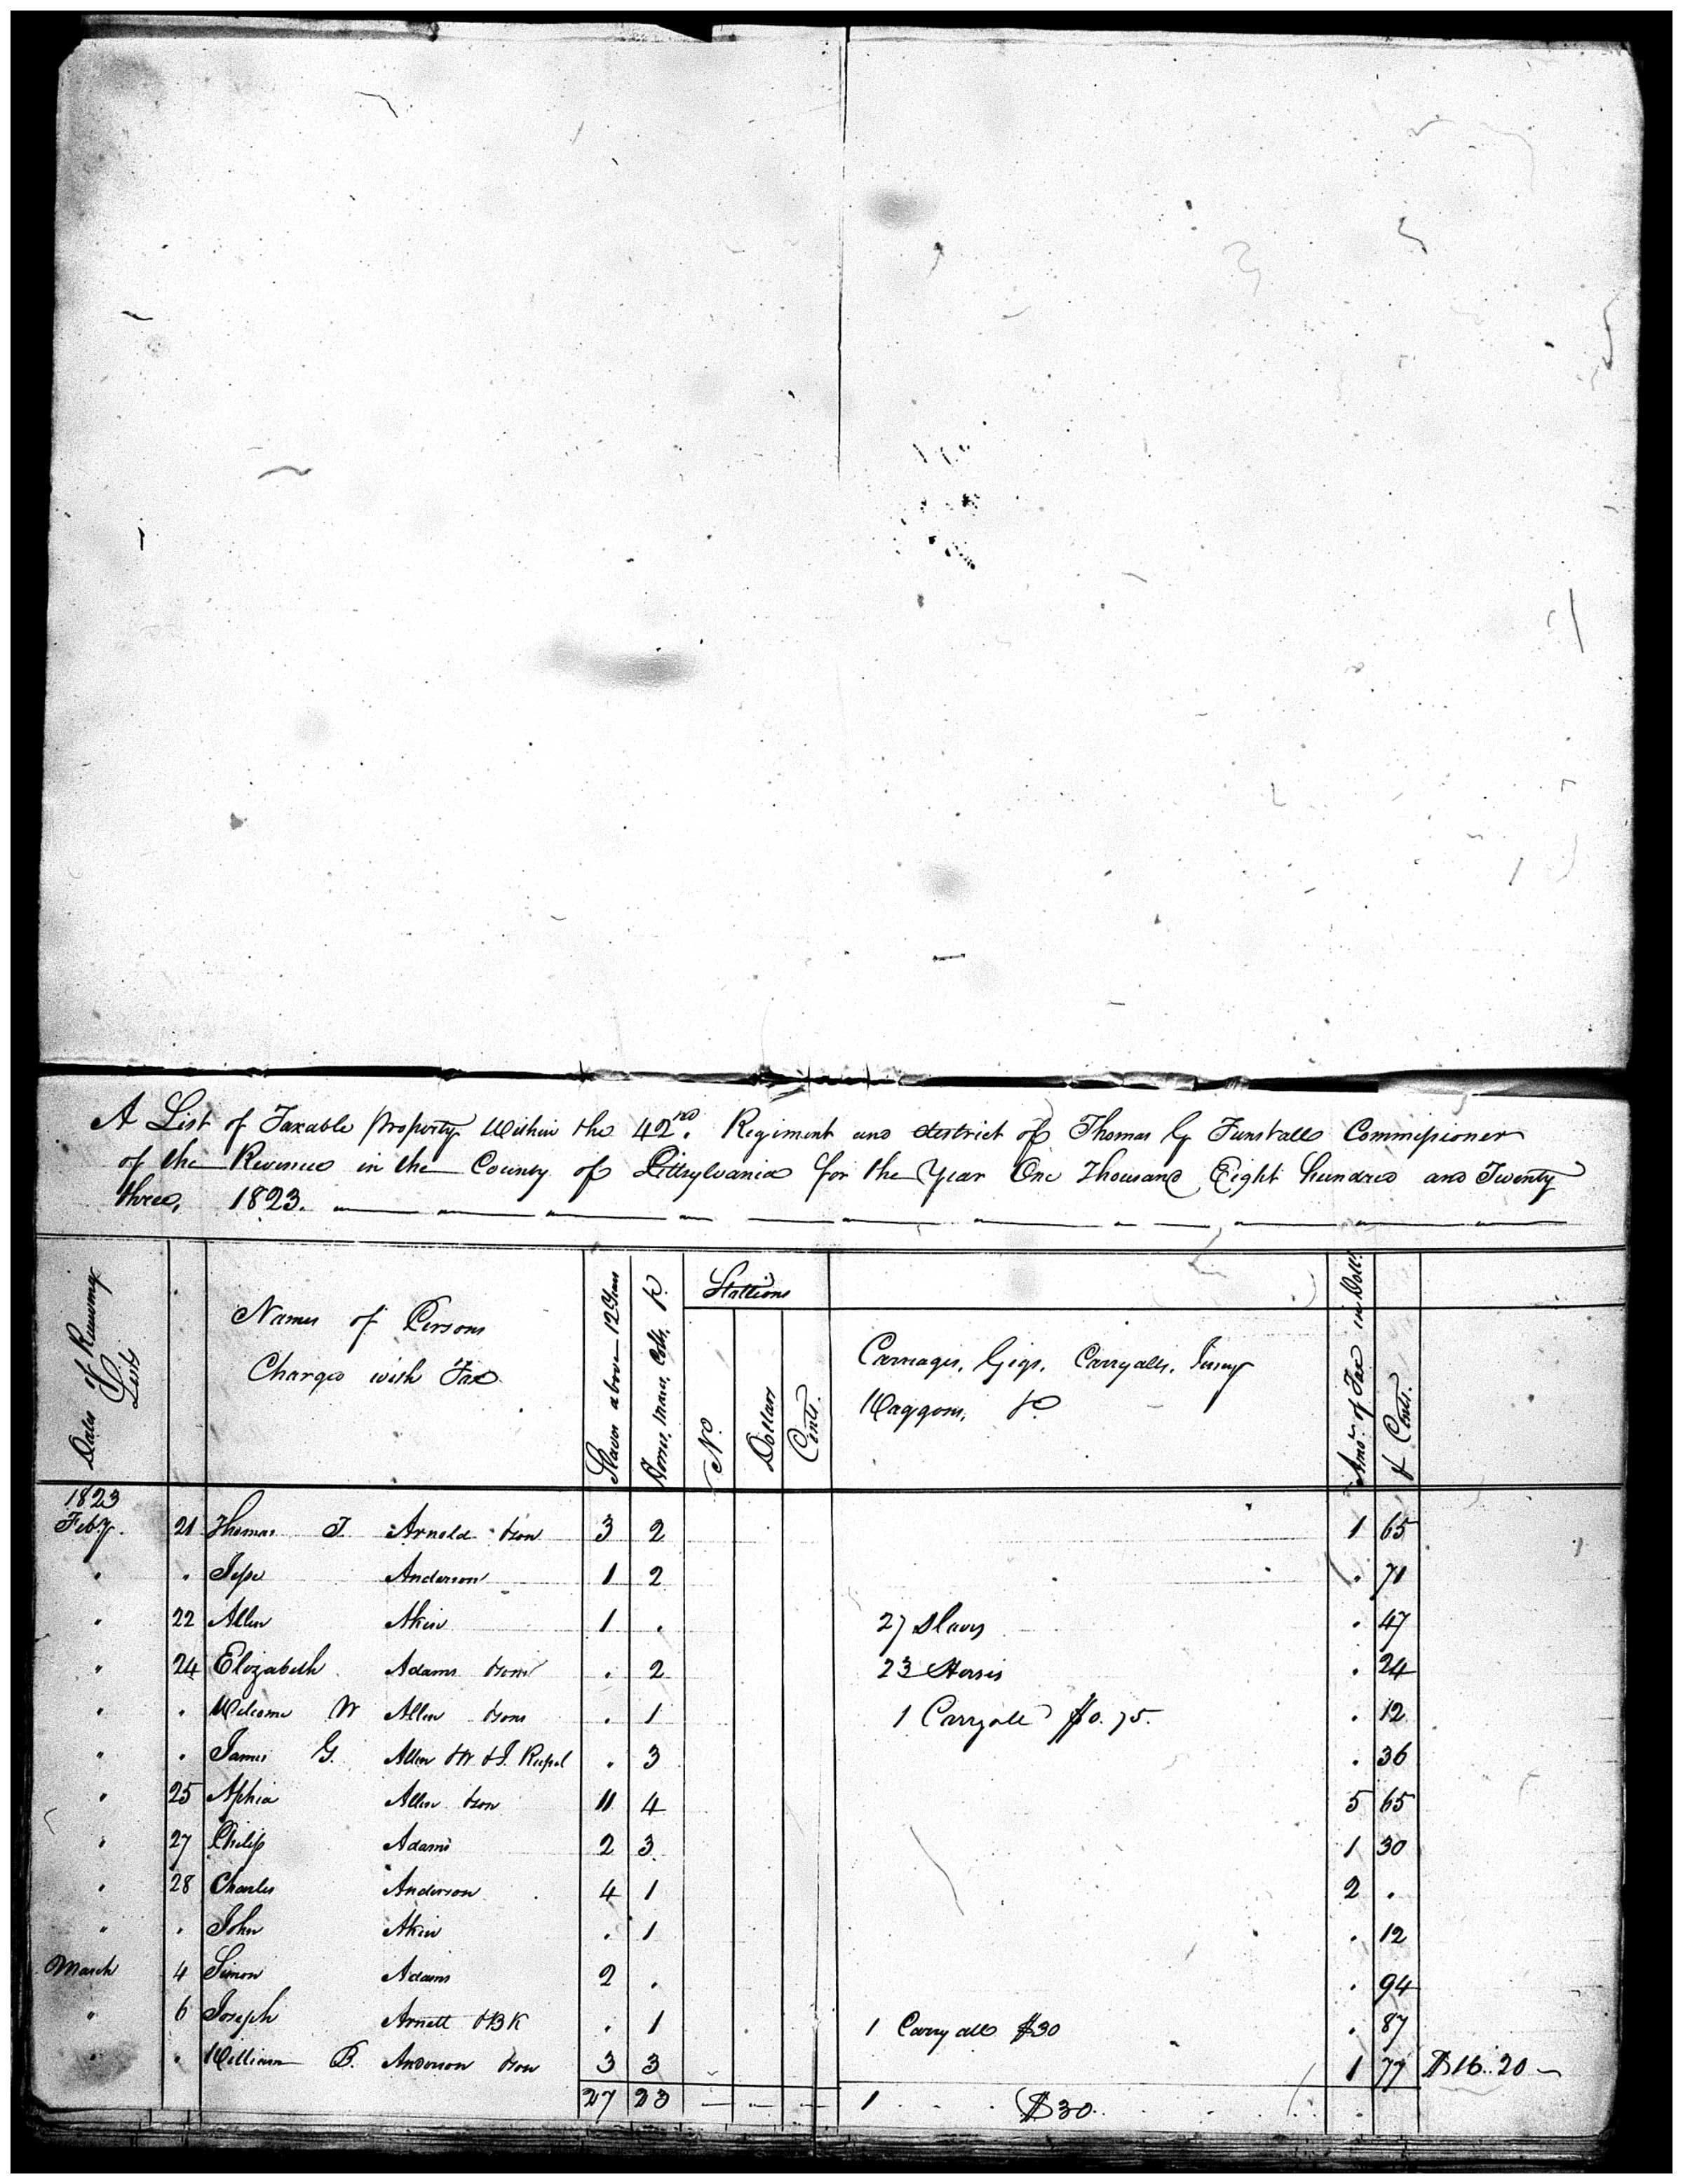 A List of Taxable property Within the 42nd. Regiment and district of Thomas G Tunstall Commissioner
of the Revenue in the County of Pittsylvania for the Year One Thousand Eight hundred and Twenty
three, 1823.
Dates of Receiving Lists
Names of Persons Charged with Tax
Slaves above 12 Years
Horses, Mares, Colts, &c.
Stallions
No.
Dollars
Cents.
Carriages, Gigs, Carryalls, Jersey
Waggons, &c
Amot. of Tax in Dolls.
& Cents.
1823
Feby. 21 Thomas T. Arnold & son 3 2 1 65
" . Jesse Anderson 1 2 . 71
" 22 Allen Akin 1 . 27 Slaves . 47
" 24 Elizabeth Adams & son . 2 23 Horses . 24
" . Welcome W Allen & son . 1 1 Carryall $0.75. . 12
" . James G. Allen . 3 . 36
" 25 Aphia Allen & son 11 4 5 65
" 27 Philip Adams 2 3 1 30
" 28 Charles Anderson 4 1 2 .
" . John Akin . 1 . 12
March 4 Simon Adams 2 . . 94
" 6 Joseph Arnett & BK . 1 1 Carryall $30 . 87
" . William B. Anderson & son 3 3 1 77 $16..20
27 23 1 $30.